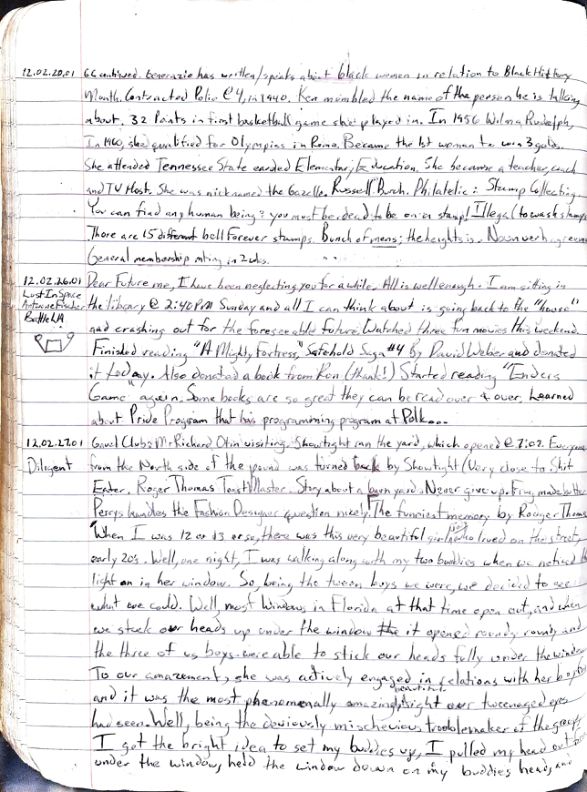 12.02.20.01 GC continued. Generazio has written/speaks about black women in relation to Black History
Month. Contracted Polio @ 4, in 1940. Ken mumbled the name of the person he is talking
about. 32 Points in first basketball game she played in. In 1956 Wilma Rudolph,
In 1960, she qualified for Olympics in Rome. Became the 1st woman to win 3 golds.
She attended Tennessee State earned Elementary Education. She became a teacher, coach
and TV Host. She was nicknamed the Gazelle. Russell Burch. Philatelic: Stamp Collecting
You can find any human being: you must be dead to be on a stamp! Illegal to wash stamps
There are 15 different bell Forever stamps. Bunch of mens; the heights is.
General membership mting in 2wks.
12.02.26.01 Dear Future me, I have been neglecting you for a while. All is well enough. I am sitting in
Lost In Space the library @ 2:40PM Sunday and all I can think about is going back to the "house"
Battle LA and crashing out for the foreseeable future. Watched three fun movies this weekend.
Finished reading "A Mighty Fortress," Safehold Saga #4 By David Weber and donated
it today. Also donated a book from Ron (thank!) Started reading "Enders
Game" again. Some books are so great they can be read over & over. Learned
about Pride Program that has programming program at Polk...
12.02.27.01 Gavel Club: Mr Richard Otin visiting. Showtight ran the yard, which opened @ 7:07. Everyone
Diligent from the North side of the pound was turned back by Showtight (Very close to Shit
Eater. Roger Thomas ToastMaster. Story about a yard. Never give up. made by the
Perrys handles the Fashion Designer question nicely. The funniest memory by Rouger Thomas
"When I was 12 or 13 or so, there was this very beautiful girl who lived on the street,
early 20's. Well, one night, I was walking along with my two buddies when we noticed the
light on in her window. So, being the tween boys we were, we decided to see
what we could. Well, most windows in Florida at that time open out, and when
we stuck our heads up under the window the it opened roundy roundy and
the three of us boys were able to stick our heads fully under the window
To our amazement, she was actively engaged in relations with her boyf
and it was the most phenomenally amazingly beautiful sight our tweenaged eyes
had seen. Well, being the deviously mischevious troublemaker of the group
I got the bright idea to set my buddies up, I pulled my head out from
under the window, held the window down on my buddies heads, and